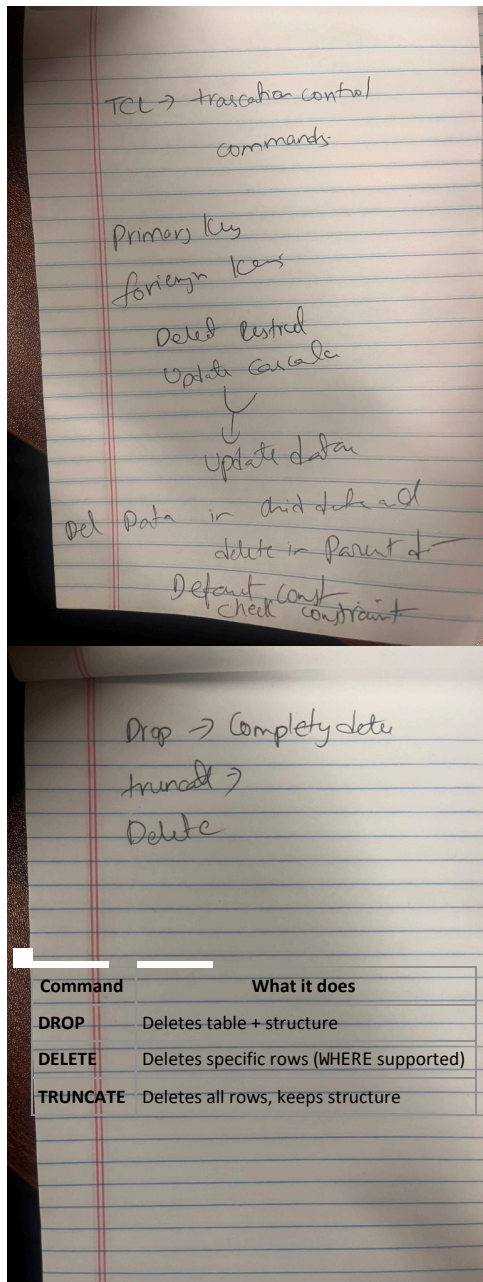 TCL → trascation control
commands.
Primary Key
foriengn keys
Delet Restricd
Update Cascade
Update data
Del Data in child table and
delete in Parent t
Default const
check constraint
Drop → Complety dete
truncatt →
Delete
Command What it does
DROP Deletes table + structure
DELETE Deletes specific rows (WHERE supported)
TRUNCATE Deletes all rows, keeps structure